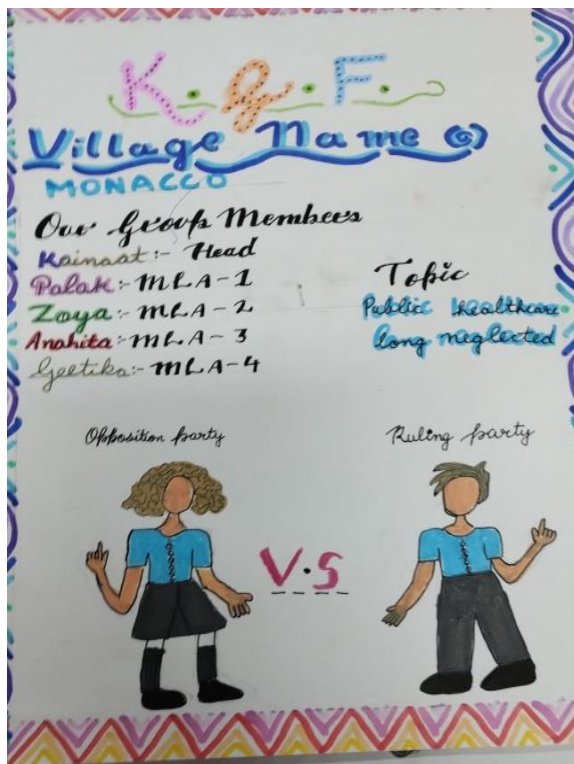 K.G.F.
Village Name
MONACCO
Our Group Members
Kainaat:- Head
Palak:- MLA-1
Zoya:- MLA-2
Anahita:- MLA-3
Geetika:- MLA-4
Topic
Public healthcare
long neglected
Opposition party
Ruling party
V.S